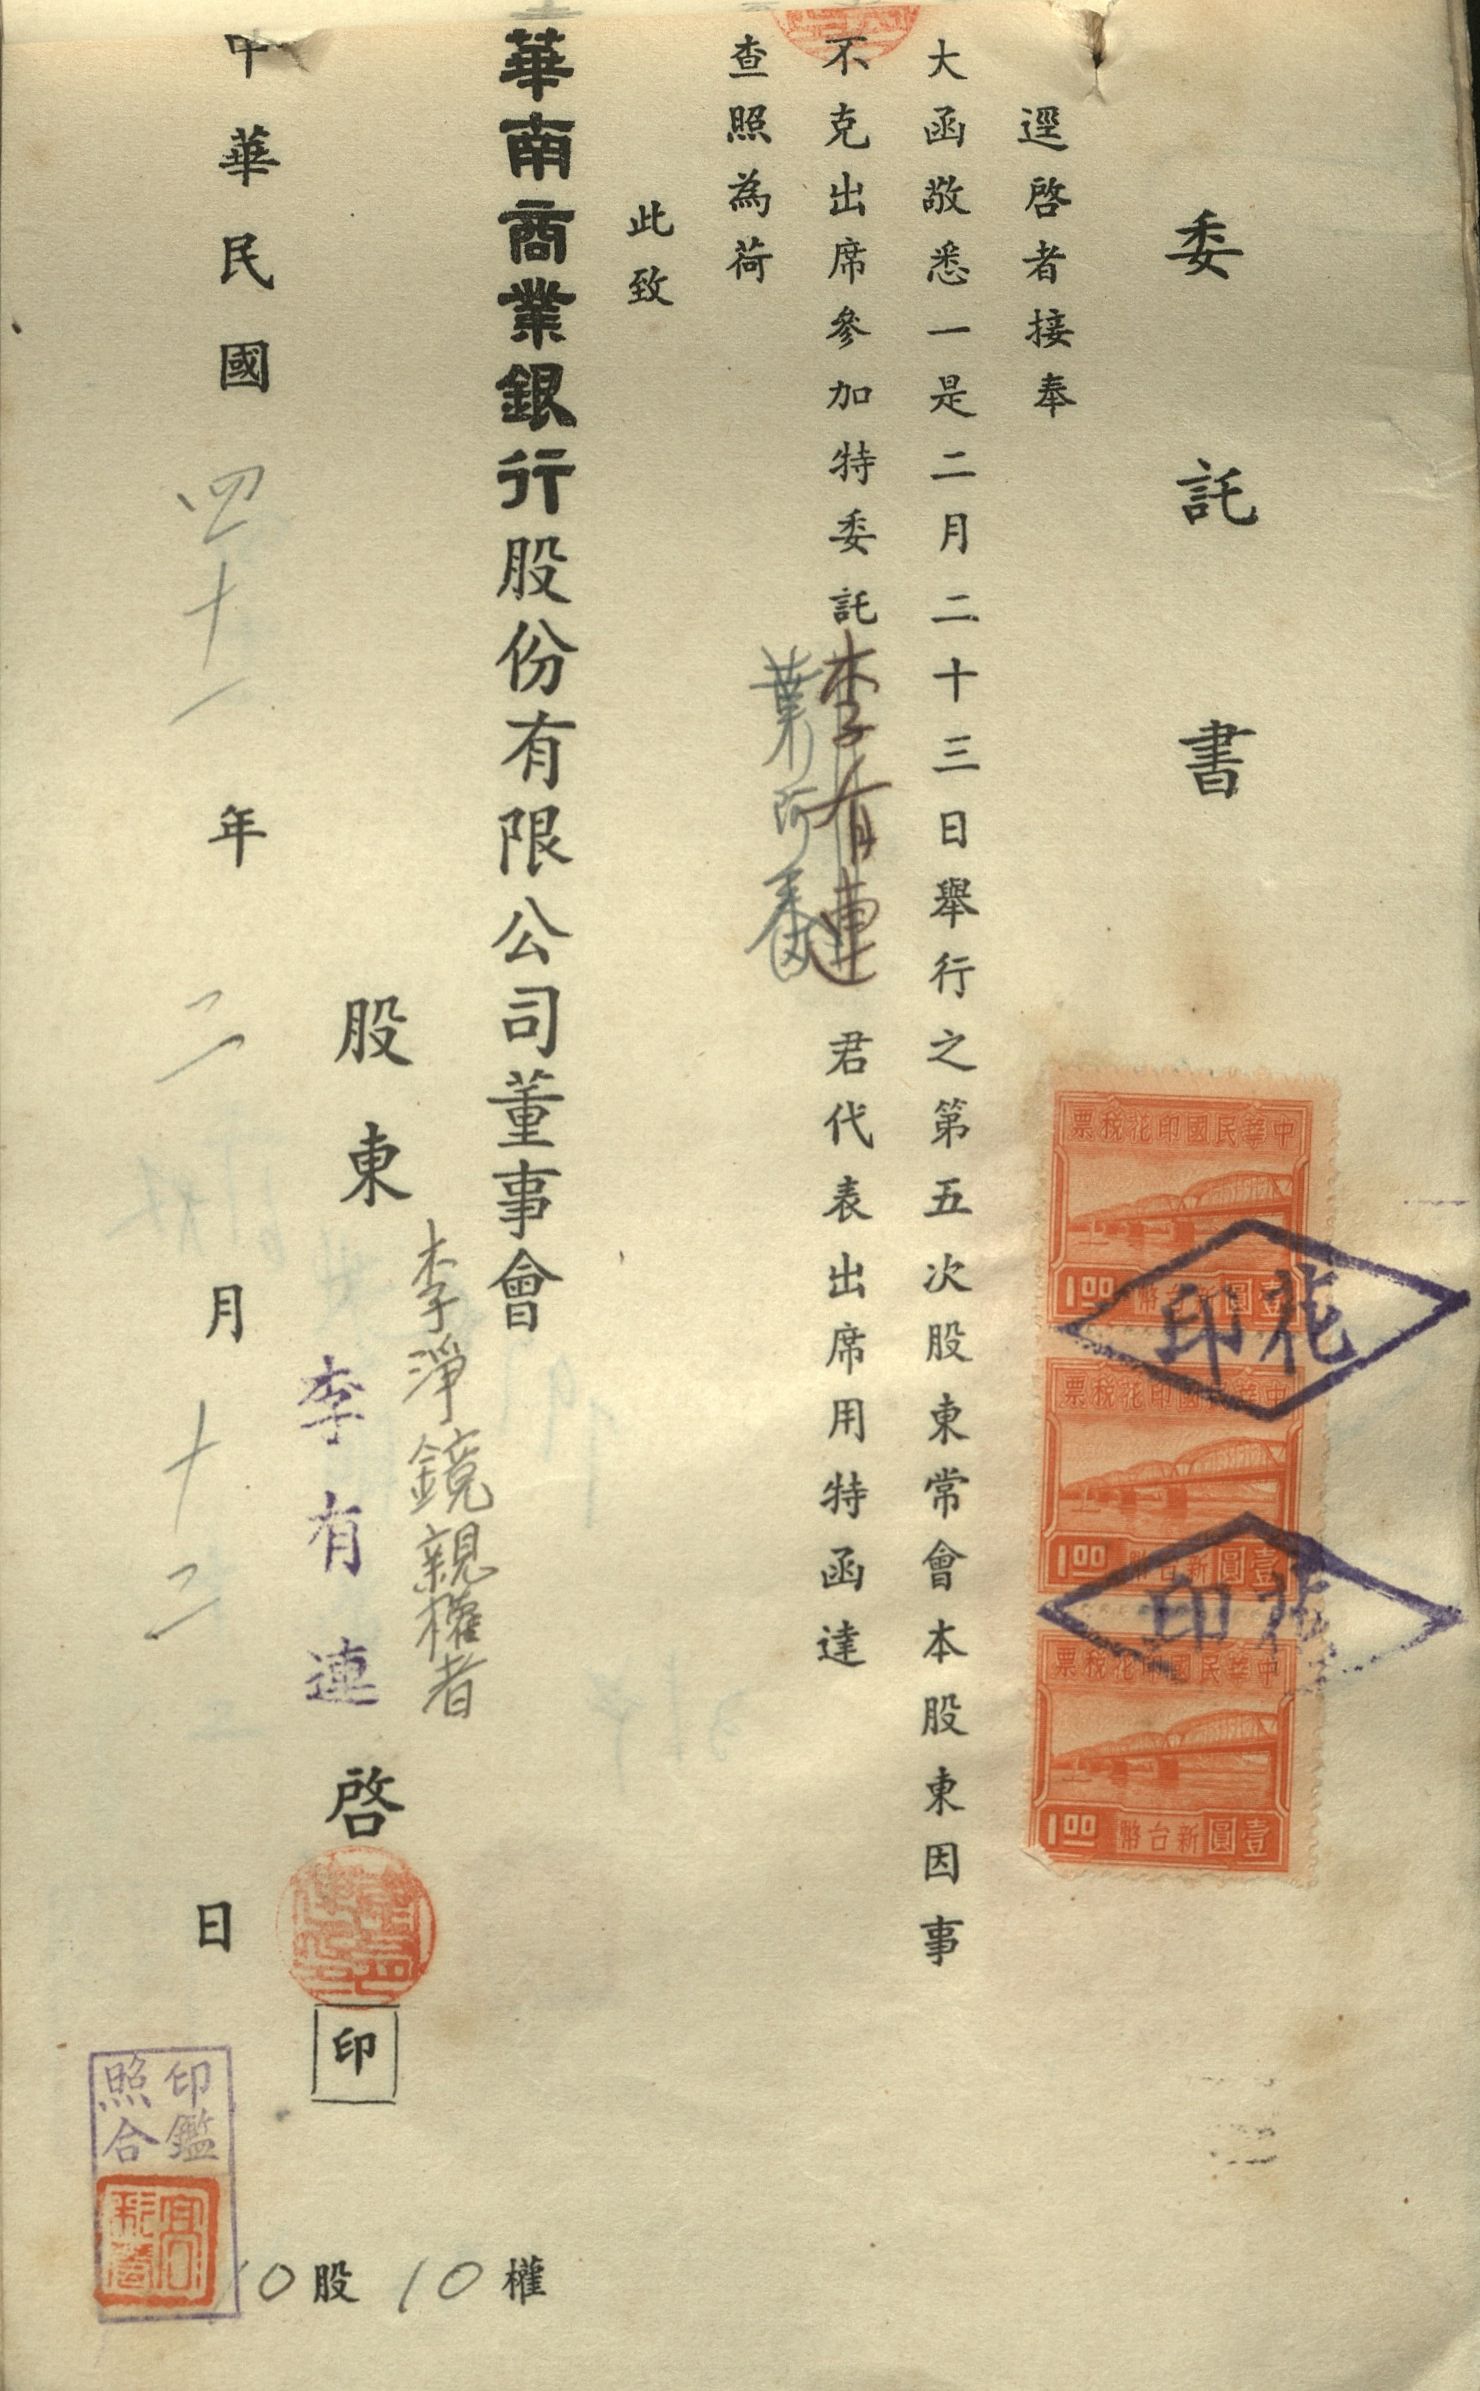 委託書
逕啓者接奉
大函敬悉一是二月二十三日舉行之第五次股東常會本股東因事
不克出席參加特委託李有連君代表出席用特函達
葉阿
查照為荷
此致
華南商業銀行股份有限公司董事會
股東李淨鏡親權者
李有連啓
印
中華民國四十一年二月十二日
10股 10權
印鑑
照合
中華民國印花稅票
1.00 壹圓新台幣
花印
中華民國印花稅票
1.00 壹圓新台幣
花印
中華民國印花稅票
1.00 壹圓新台幣